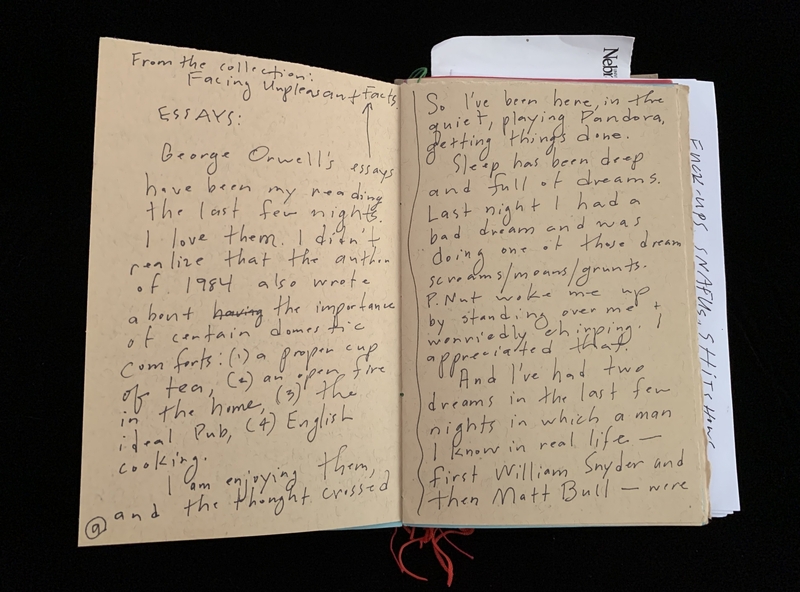 From the collection:
Facing Unpleasant Facts
ESSAYS:
George Orwell's essays
have been my reading
the last few nights.
I love them. I didn't
realize that the author
of 1984 also wrote
about having the importance
of certain domestic
comforts: (1) a proper cup
of tea, (2) an open fire
in the home, (3) the
ideal Pub, (4) English
cooking.
I am enjoying them,
and the thought crossed
a
So I've been here, in the
quiet, playing Pandora,
getting things done.
Sleep has been deep
and full of dreams.
Last night I had a
bad dream and was
doing one of those dream
screams/moans/grunts.
P. Nut woke me up
by standing over me +
worriedly chirping. I
appreciated that.
And I've had two
dreams in the last few
nights in which a man
I know in real life —
first William Snyder and
then Matt Bull — were
Nebr
FUCK-UPS, SNAFUs, SHITSHOWS